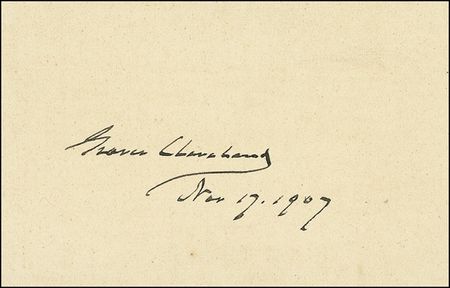 Grover Cleveland
Nov 17. 1907